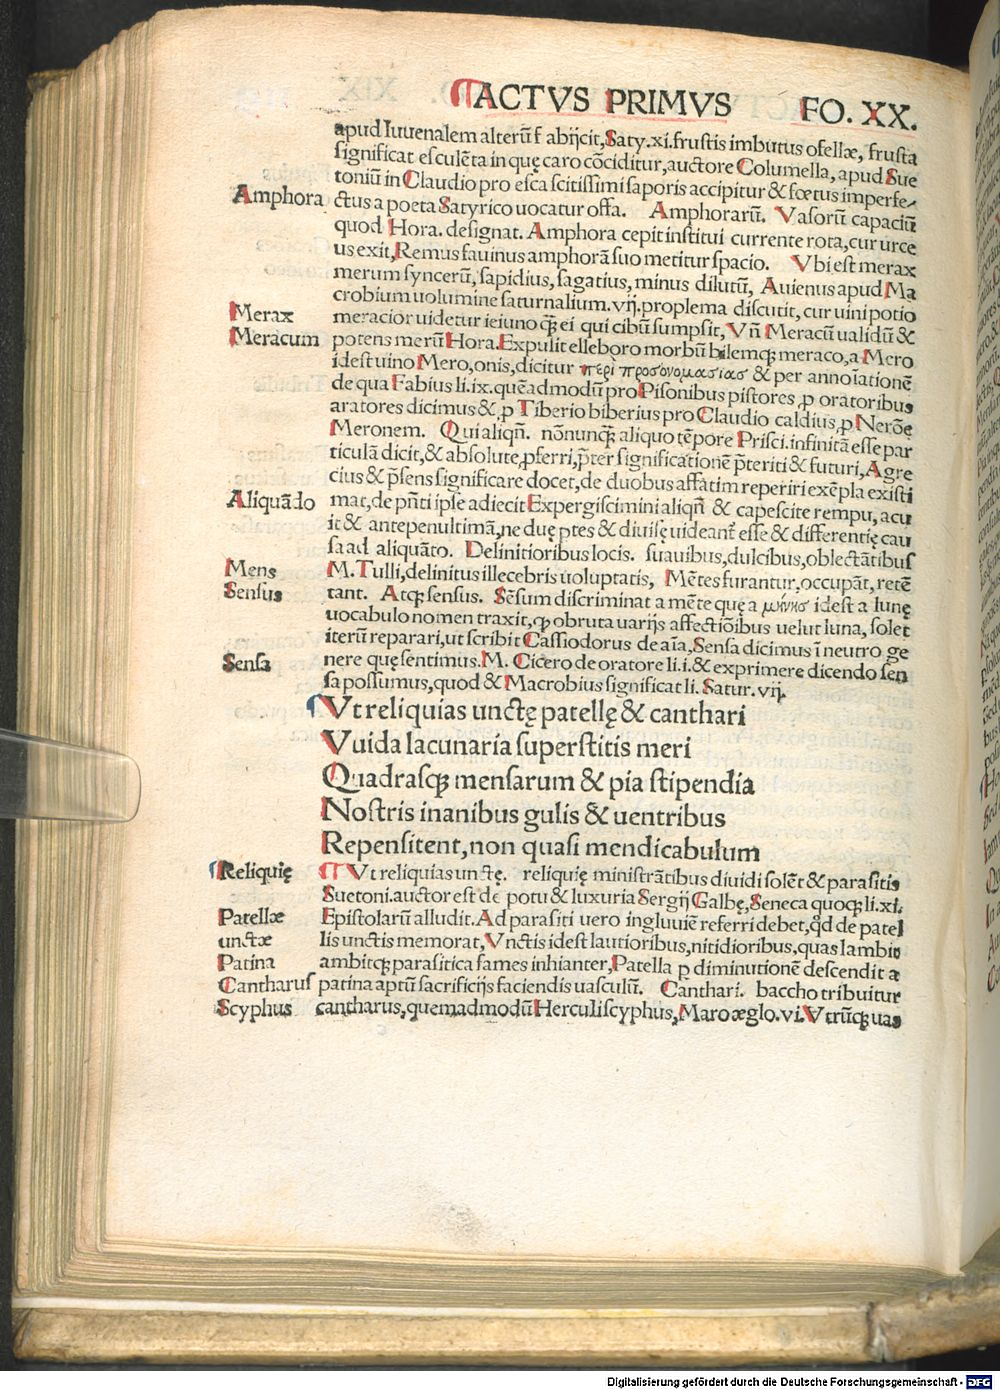 ACTVS PRIMVS FO. XX.
apud Iuuenalem alterũ f abijcit, Saty. xi. frustis imbutus ofellæ, frusta
significat esculẽta in quę caro cõciditur, auctore Columella, apud Sue
toniũ in Claudio pro esca scitissimi saporis accipitur & fœtus imperfe
Amphora
ctus a poeta Satyrico uocatur offa. Amphorarũ. Vasorũ capaciũ
quod Hora. designat. Amphora cepit institui currente rota, cur urce
us exit, Remus fauinus amphorã suo metitur spacio. Vbi est merax
merum syncerũ, sapidius, sagatius, minus dilutũ, Auienus apud Ma
crobium uolumine saturnalium. vij. proplema discutit, cur uini potio
Merax
meracior uidetur ieiuno ꝙ̃ ei qui cibũ sumpsit, Vñ Meracũ ualidũ &
Meracum
potens merũ Hora. Expulit elleboro morbũ bilemqꝫ meraco, a Mero
idest uino Mero, onis, dicitur περι προσονομασιασ & per annoĩationẽ
de qua Fabius li. ix. quẽadmodũ pro Pisonibus pistores, ꝓ oratoribus
aratores dicimus &, ꝓ Tiberio biberius pro Claudio caldius, ꝓ Nerõe
Meronem. Qui aliqñ. nõnunqꝫ̃ aliquo tẽpore Prisci. infinitã esse par
ticulã dicit, & absolute, ꝓferri, p̃ter significationẽ p̃teriti & futuri, Agre
cius & p̃sens significare docet, de duobus affatim reperiri exẽpla existi
Aliquãdo
mat, de pñti ipse adiecit Expergiscimini aliqñ & capescite rempu, acu
it & antepenultimã, ne duę ptes & diuisę uideant᷑ esse & differentię cau
sa ad aliquãto. Delinitioribus locis. suauibus, dulcibus, oblectãtibus
Mens
M. Tulli, delinitus illecebris uoluptatis, Mẽtes furantur, occupãt, retẽ
Sensus
tant. Atqꝫ sensus. Sẽsum discriminat a mẽte quę a μήνησ idest a lunę
uocabulo nomen traxit, ꝙ obruta uarijs affectiõibus uelut luna, solet
iterũ reparari, ut scribit Cassiodorus de aĩa, Sensa dicimus ĩ neutro ge
Sensa
nere quę sentimus. M. Cicero de oratore li. i. & exprimere dicendo sen
sa possumus, quod & Macrobius significat li. Satur. vij.
Vt reliquias unctę patellę & canthari
Vuida lacunaria superstitis meri
Quadrasqꝫ mensarum & pia stipendia
Nostris inanibus gulis & uentribus
Repensitent, non quasi mendicabulum
Reliquię
Vt reliquias unctę. reliquię ministrãtibus diuidi solẽt & parasitis
Suetoni. auctor est de potu & luxuria Sergij Galbę, Seneca quoqꝫ li. xi.
Patellæ
Epistolarũ alludit. Ad parasiti uero ingluuiẽ referri debet, qđ de patel
unctæ
lis unctis memorat, Vnctis idest lautioribus, nitidioribus, quas lambit
Patina
ambitqꝫ parasitica fames inhianter, Patella ꝓ diminutionẽ descendit a
Cantharus
patina aptũ sacrificijs faciendis uasculũ. Canthari. baccho tribuitur
Scyphus
cantharus, quemadmodũ Herculi scyphus, Maro æglo. vi. Vtrũqꝫ uas
Digitalisierung gefördert durch die Deutsche Forschungsgemeinschaft - DFG